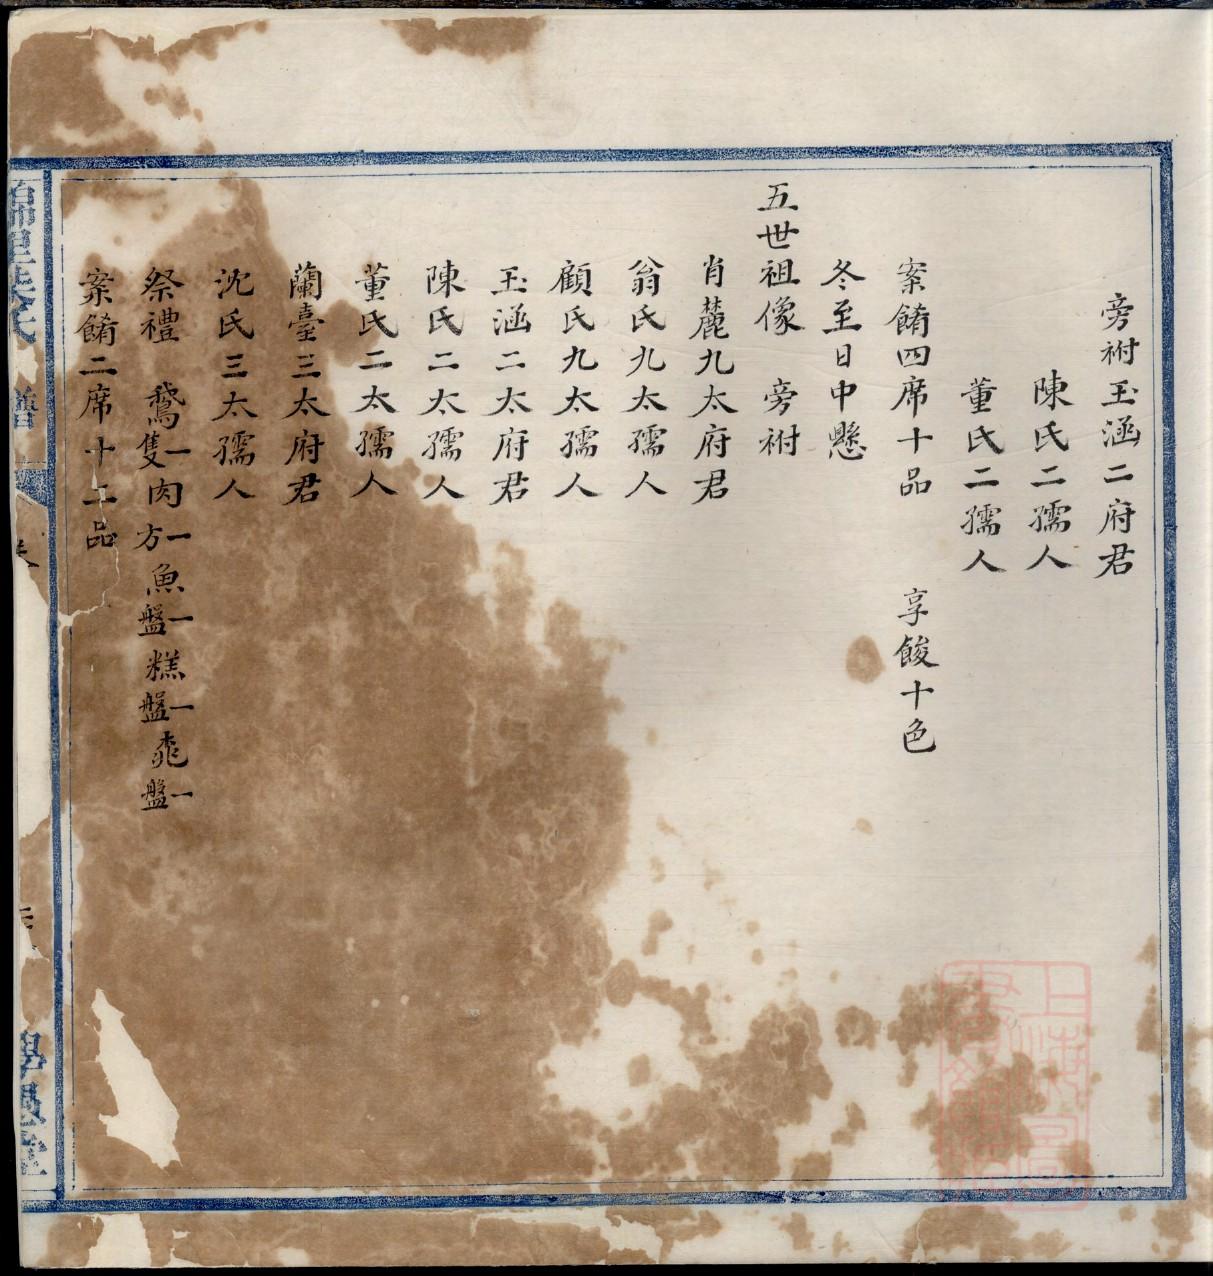 旁祔玉涵二府君
陳氏二孺人
董氏二孺人
案餚四席十品 享餕十色
冬至日中懸
五世祖像 旁祔
肖麓九太府君
翁氏九太孺人
顧氏九太孺人
玉涵二太府君
陳氏二太孺人
董氏二太孺人
蘭臺三太府君
沈氏三太孺人
祭禮 鵞一隻肉一方魚一盤糕一盤粢一盤
案餚二席十二品